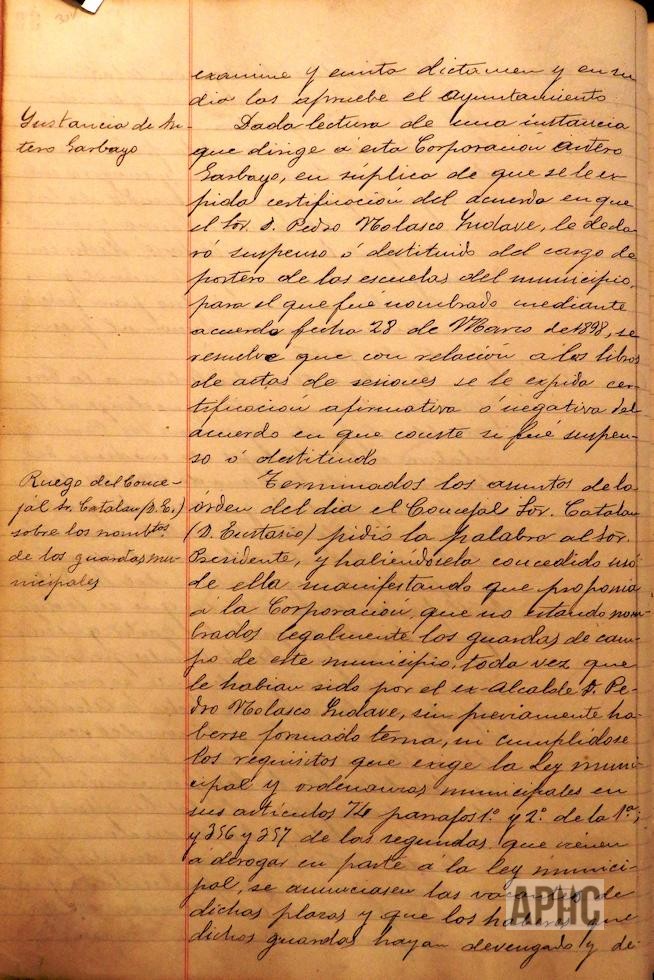 304
examine y emita dictamen y en su
dia las apruebe el ayuntamiento
Ynstancia de An-
tero Garbayo
Dada lectura de una instancia
que dirige á esta Corporación Antero
Garbayo, en súplica de que se le ex-
pida certificación del acuerdo en que
el Sor. D. Pedro Nolasco Yndave, le decla
ró suspenso ó destituido del cargo de
portero de las escuelas del municipio,
para el que fué nombrado mediante
acuerdo fecha 28 de Marzo de 1898, se
resuelve que con relación á los libros
de actas de sesiones se le expida cer-
tificación afirmativa ó negativa del
acuerdo en que conste si fué suspen-
so ó destituido
Ruego del Conce-
jal Sr. Catalan (D. E.)
sobre los nombtos.
de los guardas mu-
nicipales
Terminados los asuntos de la
órden del dia el Concejal Sor. Catalan
(D. Eustasio) pidió la palabra al Sor.
Presidente, y habiéndosela concedido usó
de ella manifestando que proponia
á la Corporación, que no estando nom-
brados legalmente los guardas de cam-
po de este municipio, toda vez que
le habian sido por el ex-Alcalde D. Pe-
dro Nolasco Yndave, sin previamente ha-
berse formado terna, ni cumplidose
los requisitos que exige la Ley muni-
cipal y ordenanzas municipales en
sus artículos 74 parrafos 1º. y 2º. de la 1ª.;
y 356 y 357 de las segundas que vienen
á derogar en parte á la ley munici-
pal, se anunciasen las vacantes de
dichas plazas y que los haberes que
dichos guardas hayan devengado y de-
APHC